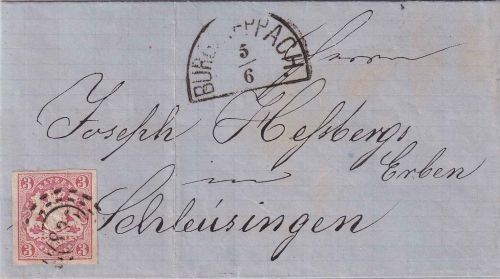 BURGPREPPACH.
5
6
Herrn
Joseph Hessbergs
Erben
in
Schleusingen
3 3
3 3